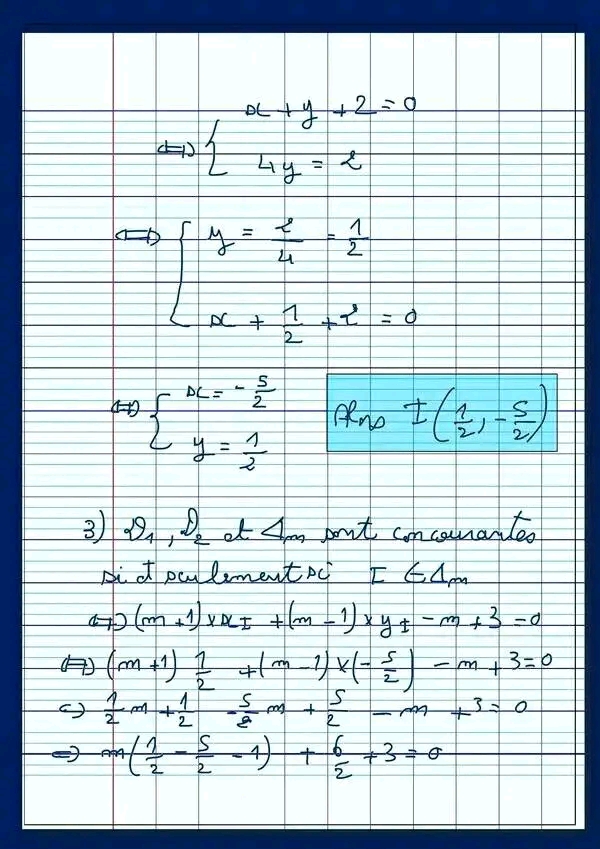 x + y + 2 = 0
⇔ {
4y = 2
⇔ { y = 2/4 = 1/2
x + 1/2 + 2 = 0
⇔ { x = - 5/2
y = 1/2
Alors I(1/2, - 5/2)
3) D₁, D₂ et Δm sont concourantes
si et seulement si I ∈ Δm
⇔ (m+1) × xI + (m - 1) × yI - m + 3 = 0
⇔ (m+1) 1/2 + (m - 1) × (- 5/2) - m + 3 = 0
⇔ 1/2 m + 1/2 - 5/2 m + 5/2 - m + 3 = 0
⇔ m(1/2 - 5/2 - 1) + 6/2 + 3 = 0